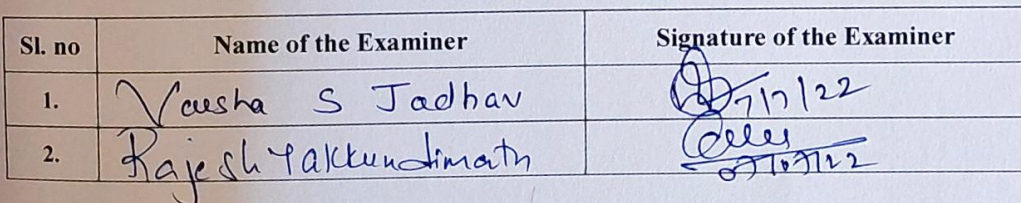 Sl. no Name of the Examiner Signature of the Examiner
1. Varsha S Jadhav 7/7/22
2. Rajesh Yakkundimath 07/07/22